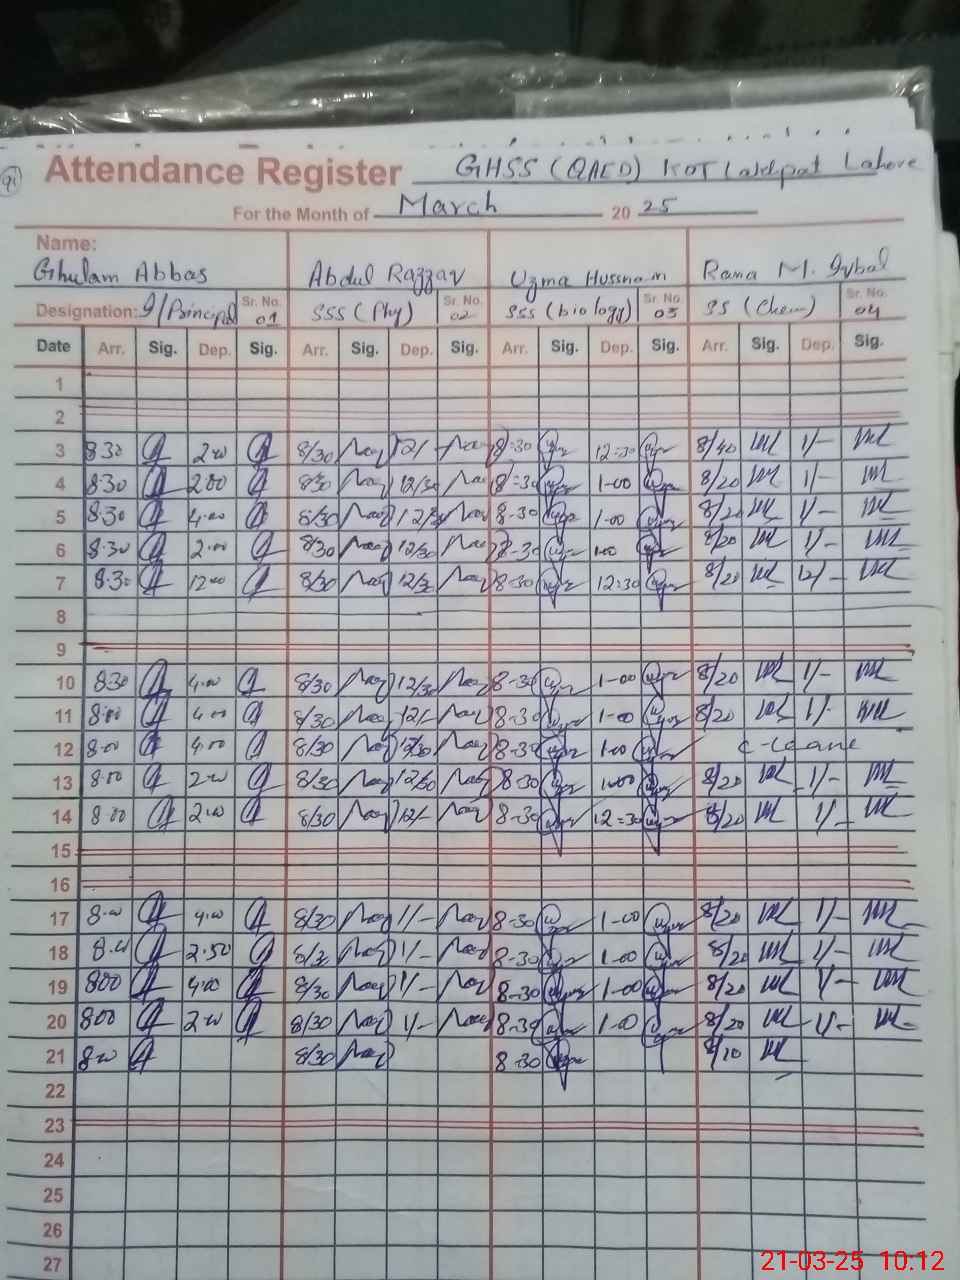 Attendance Register GHSS (QAED) KOT Lakhpat Lahore
For the Month of March 20 25
Name:
Ghulam Abbas Abdul Razzaq Uzma Hussnain Rana M. Iqbal
Designation: I/Principal Sr. No. 01 SSS (Phy) Sr. No. 02 SSS (biology) Sr. No. 03 SS (Chem) Sr. No. 04
Date Arr. Sig. Dep. Sig. Arr. Sig. Dep. Sig. Arr. Sig. Dep. Sig. Arr. Sig. Dep. Sig.
1
2
3 8 30 2 00 8/30 12/- 8-30 12-30 8/40 1/-
4 8.30 2.00 8/30 12/30 8-30 1-00 8/20 1/-
5 8.30 4.00 8/30 12/30 8-30 1-00 8/20 1/-
6 8.30 2.00 8/30 12/30 8-30 1-00 8/20 1/-
7 8.30 12 00 8/30 12/30 8-30 12:30 8/20 12/-
8
9
10 830 4.00 8/30 12/30 8-30 1-00 8/20 1/-
11 8.00 4.00 8/30 12/- 8-30 1-00 8/20 1/-
12 8.00 4.00 8/30 12/30 8-30 1-00 C-Leave
13 8.00 2.00 8/30 12/30 8-30 1-00 8/20 1/-
14 8.00 2.00 8/30 12/- 8-30 12-30 8/20 1/-
15
16
17 8.00 4.00 8/30 1/- 8-30 1-00 8/20 1/-
18 8.00 2.50 8/30 1/- 8-30 1-00 8/20 1/-
19 800 4.00 8/30 1/- 8-30 1-00 8/20 1/-
20 800 2.00 8/30 1/- 8-30 1-00 8/20 1/-
21 8.00 8/30 8-30 8/10
22
23
24
25
26
27
21-03-25 10:12